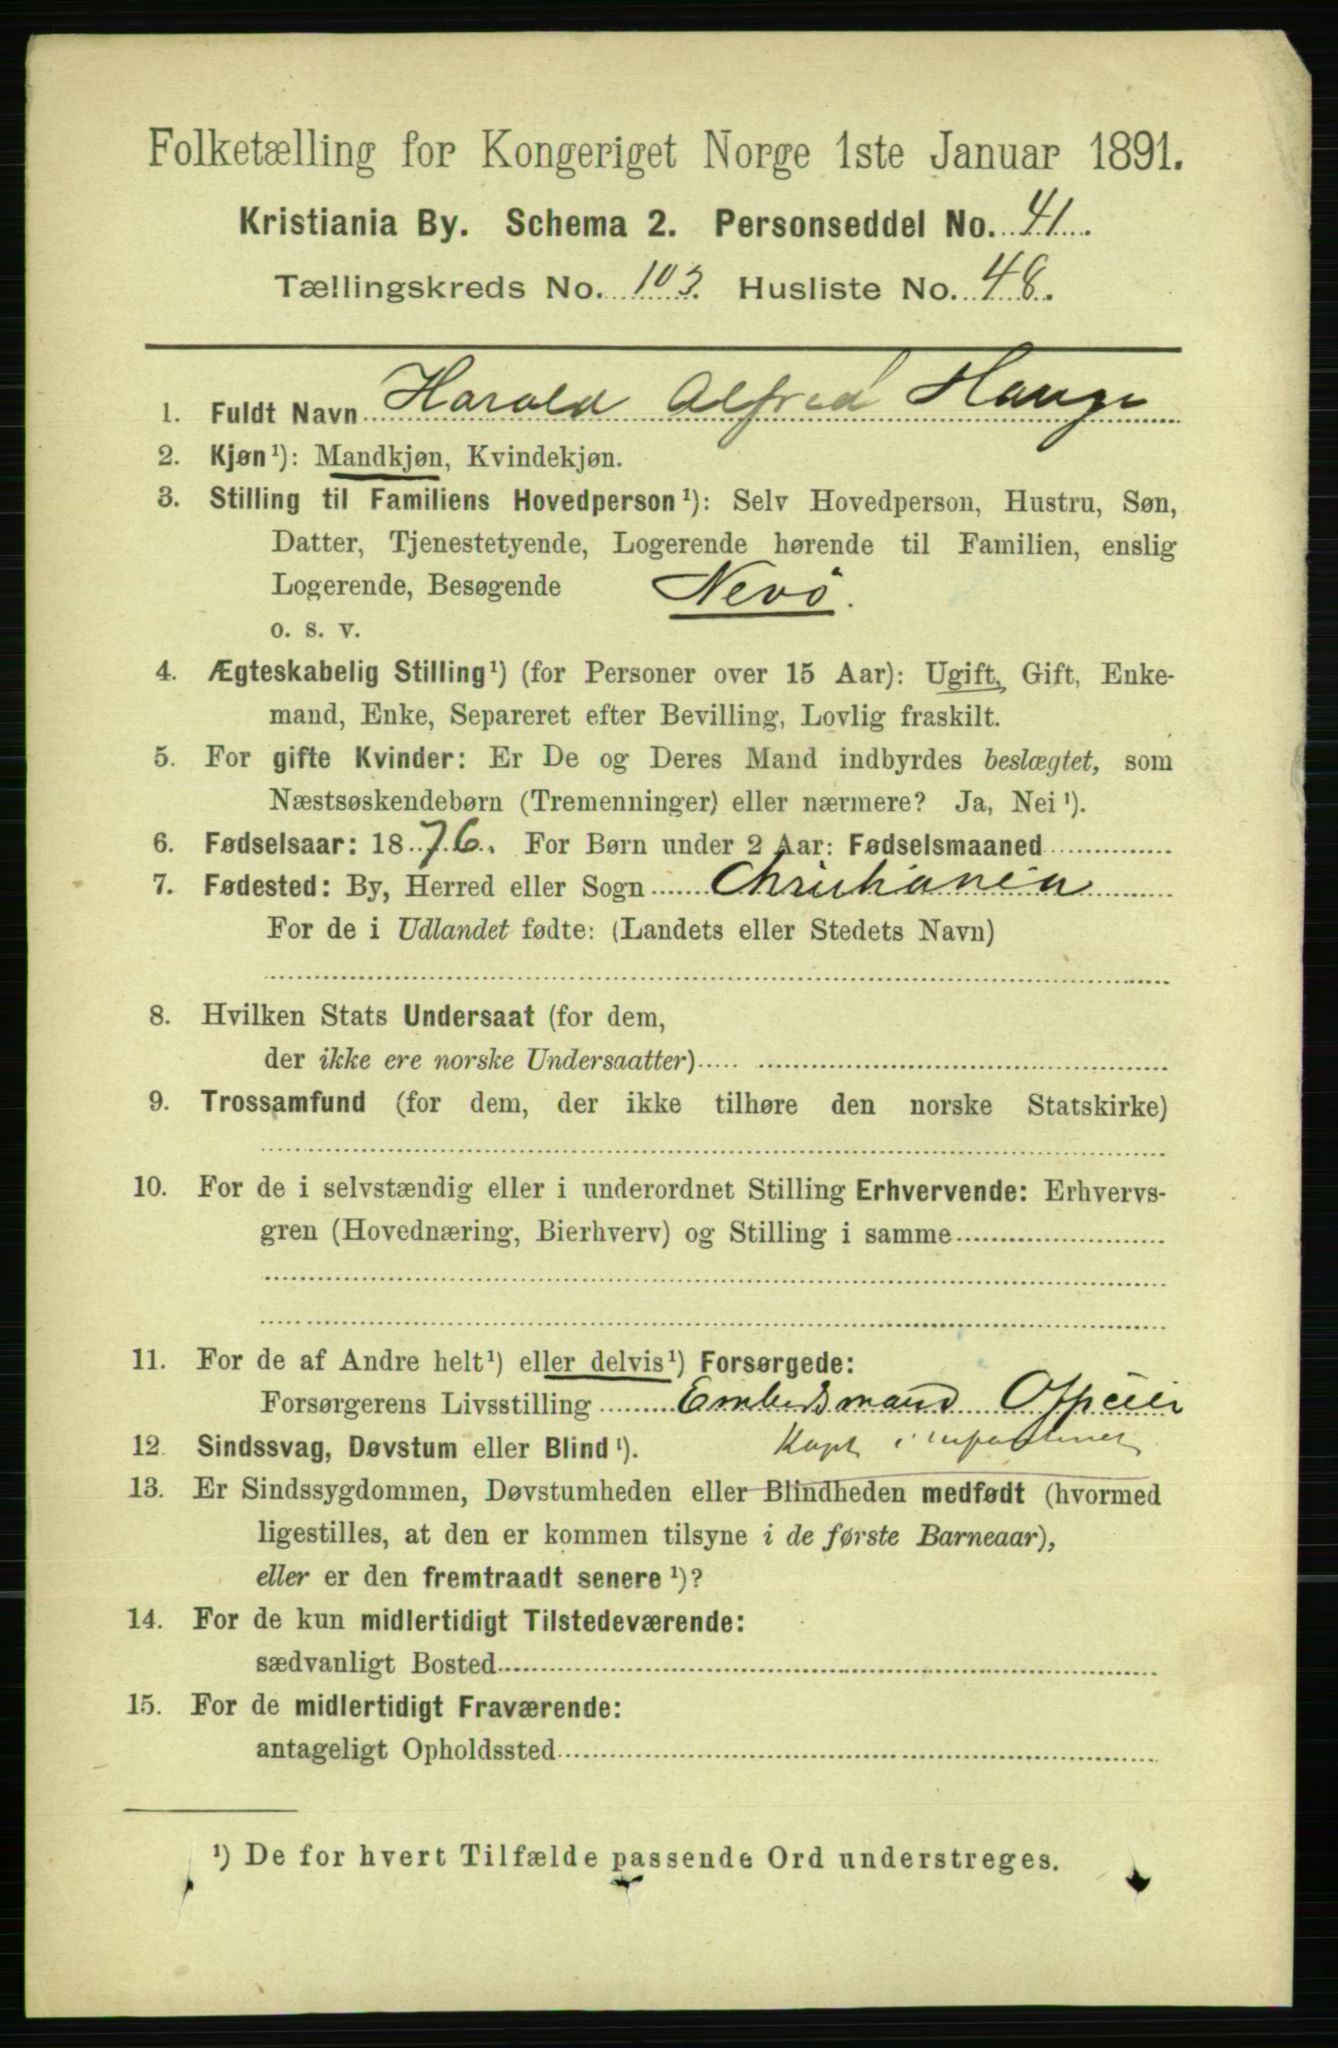 Folketælling for Kongeriget Norge 1ste Januar 1891.
Kristiania By. Schema 2. Personseddel No. 41.
Tællingskreds No. 103. Husliste No. 48.
1. Fuldt Navn Harald Alfred Hauge
2. Kjøn¹): Mandkjøn, Kvindekjøn.
3. Stilling til Familiens Hovedperson¹): Selv Hovedperson, Hustru, Søn,
Datter, Tjenestetyende, Logerende hørende til Familien, enslig
Logerende, Besøgende Nevö.
o. s. v.
4. Ægteskabelig Stilling¹) (for Personer over 15 Aar): Ugift, Gift, Enke-
mand, Enke, Separeret efter Bevilling, Lovlig fraskilt.
5. For gifte Kvinder: Er De og Deres Mand indbyrdes beslægtet, som
Næstsøskendebørn (Tremenninger) eller nærmere? Ja, Nei¹).
6. Fødselsaar: 1876. For Børn under 2 Aar: Fødselsmaaned
7. Fødested: By, Herred eller Sogn Christiania
For de i Udlandet fødte: (Landets eller Stedets Navn)
8. Hvilken Stats Undersaat (for dem,
der ikke ere norske Undersaatter)
9. Trossamfund (for dem, der ikke tilhøre den norske Statskirke)
10. For de i selvstændig eller i underordnet Stilling Erhvervende: Erhvervs-
gren (Hovednæring, Bierhverv) og Stilling i samme
11. For de af Andre helt¹) eller delvis¹) Forsørgede:
Forsørgerens Livsstilling Embedsmand Officier
Kapt i
12. Sindssvag, Døvstum eller Blind¹).
13. Er Sindssygdommen, Døvstumheden eller Blindheden medfødt (hvormed
ligestilles, at den er kommen tilsyne i de første Barneaar),
eller er den fremtraadt senere¹)?
14. For de kun midlertidigt Tilstedeværende:
sædvanligt Bosted
15. For de midlertidigt Fraværende:
antageligt Opholdssted
¹) De for hvert Tilfælde passende Ord understreges.